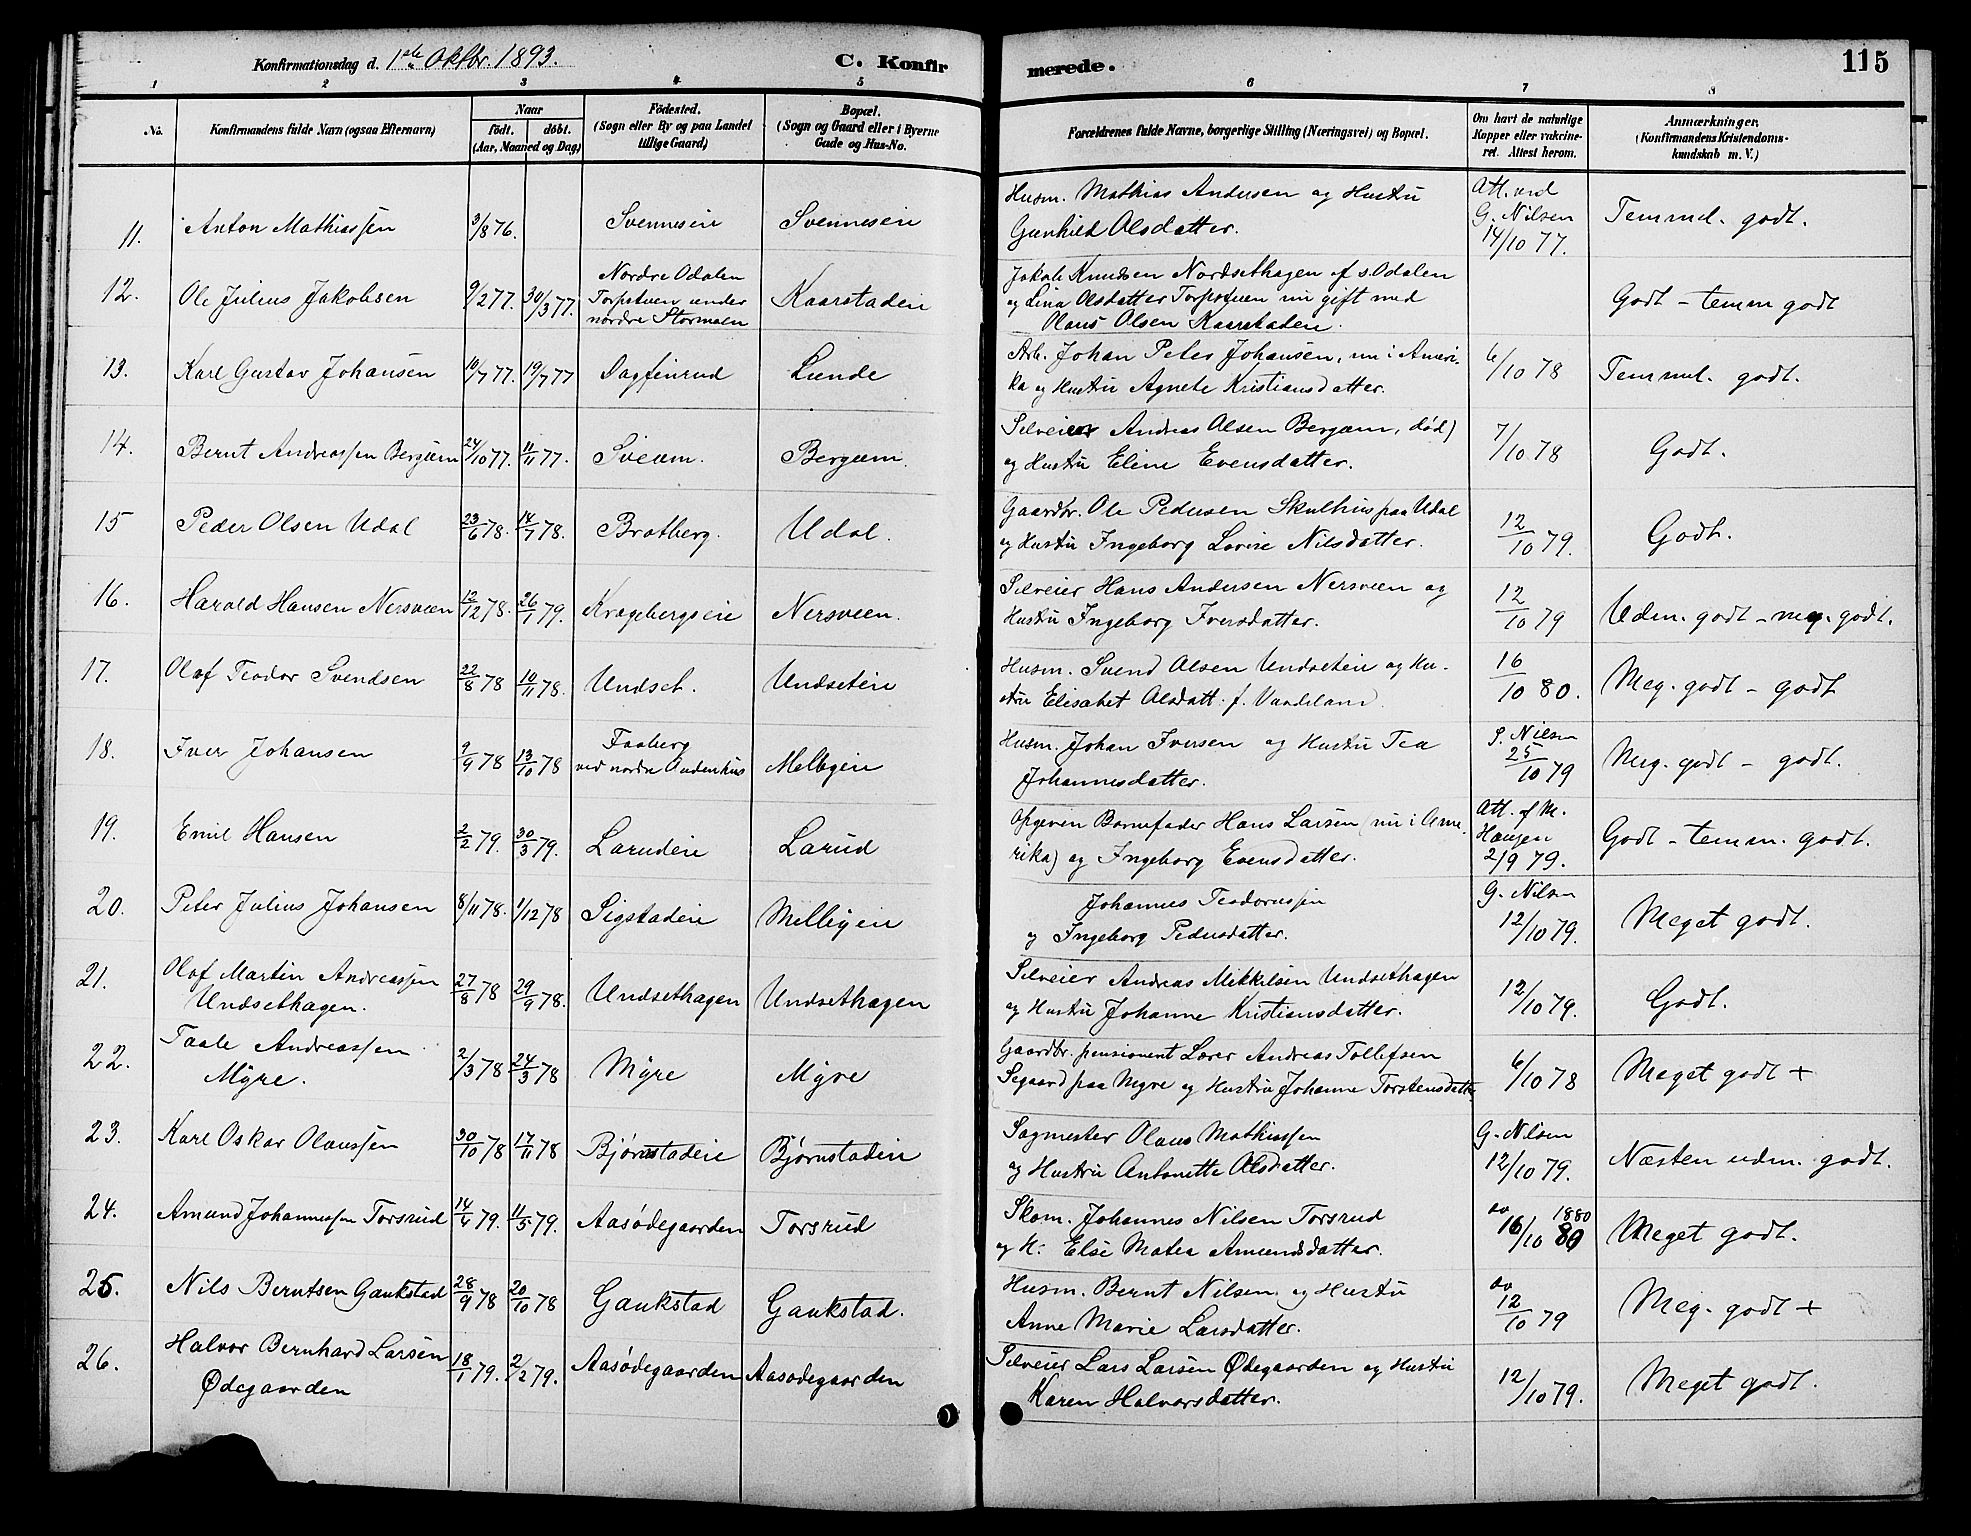 Konfirmationsdag d. 1ste Oktbr. 1893. C. Konfirmerede. 115
1 2 3 4 5 6 7 8
No. Konfirmandens fulde Navn (ogsaa Efternavn) Naar født. døbt. (Aar, Maaned og Dag) Fødested. (Sogn eller By og paa Landet tillige Gaard) Bopæl. (Sogn og Gaard eller i Byerne Gade og Hus-No. Forældrenes fulde Navne, borgerlige Stilling (Næringsvei) og Bopæl. Om havt de naturlige Kopper eller vakcineret. Attest herom. Anmærkninger, (Konfirmandens Kristendomskundskab m. V.)
11. Anton Mathiassen 3/8 76. Svenneseie Svenneseie Husm. Mathias Andersen og Hustru Gunhild Olsdatter. Att. ved G. Nilsen 14/10 77. Temmel. godt.
12. Ole Julius Jakobsen 9/2 77. 30/3 77. Nordre Odalen Torpstuen under nordre Stormoen Kaarstaden Jakob Knudsen Nordsethagen af s. Odalen og Lina Olsdatter Torpstuen nu gift med Olaus Olsen Kaarstaden. Godt - temm godt
13. Karl Gustav Johansen 10/7 77. 19/7 77 Dagfinrud Lunde Arb. Johan Peter Johansen, nu i Amerika og Hustru Agnete Kristiansdatter. 6/10 78 Temmel. godt.
14. Bernt Andreassen Bergum 24/10 77. 11/11 77. Sveum. Bergum. Selveier Andreas Olsen Bergum, død) og Hustru Eline Evensdatter. 7/10 78 Godt.
15 Peder Olsen Udal 23/6 78. 14/7 78. Bratberg. Udal. Gaardbr. Ole Pedersen Skulhus paa Udal og Hustru Ingeborg Lovise Nilsdatter. 12/10 79. Godt.
16. Harald Hansen Nersveen 12/12 78. 26/1 79. Kragebergseie Nersveen. Selveier Hans Andersen Nersveen og Hustru Ingeborg Iversdatter. 12/10 79 Udm. godt - meg. godt.
17. Olaf Teodor Svendsen 22/8 78 10/11 78. Undset. Undseteie Husm. Svend Olsen Undseteie og Hustru Elisabet Olsdatt. f. Vardeland. 16/10 80. Meg. godt - godt
18. Iver Johansen 9/9 78 13/10 78 Faaberg ved nordre Melbyeie Husm. Johan Iversen og Hustru Tea Johannesdatter. S. Nilsen 25/10 79 Meg. godt - godt.
19. Emil Hansen 2/2 79. 30/3 79. Larudeie Larud Opgiven Barnefader Hans Larsen (nu i Amerika) og Ingeborg Evensdatter. Att. af M. Haugen 2/9 79. Godt - temm. godt.
20. Peter Julius Johansen 8/11 78. 1/12 78 Sigstadeie Melbyeie Johannes Teodorussen og Ingeborg Pedersdatter. G. Nilsen 12/10 79. Meget godt.
21. Olof Martin Andreassen Undsethagen. 27/8 78 29/9 78. Undsethagen Undsethagen Selveier Andreas Mikkelsen Undsethagen og Hustru Johanne Kristiansdatter. 12/10 79. Godt.
22. Taale Andreassen Myre. 2/3 78 24/3 78 Myre Myre Gaardbr. pensionert Lærer Andreas Tollefsen Segaard paa Myre og Hustru Johanne Torstensdatter 6/10 78 Meget godt +
23. Karl Oskar Olaussen 30/10 78 17/11 78 Bjørnstadeie Bjørnstadeie Sagmester Olaus Mathiassen og Hustru Antonette Olsdatter. G. Nilsen 12/10 79. Næsten udm. godt.
24. Amund Johannessen Torsrud 14/4 79. 11/5 79. Aasødegaarden Torsrud Skom. Johannes Nilsen Torsrud og H: Else Matea Amundsdatter. do 1880 16/10 80 Meget godt.
25. Nils Berntsen Gaukstad 28/9 78 20/10 78 Gaukstad Gaukstad. Husm. Bernt Nilsen og Hustru Anne Marie Larsdatter. do 12/10 79 Meg. godt +
26. Halvor Bernhard Larsen Ødegaarden 18/1 79. 2/2 79. Aasødegaarden Aasødegaarden Selveier Lars Larsen Ødegaarden og Hustru Karen Halvorsdatter. 12/10 79. Meget godt.